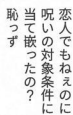 恋人でもねぇのに
呪いの対象条件に
当て嵌ったの？
恥っず